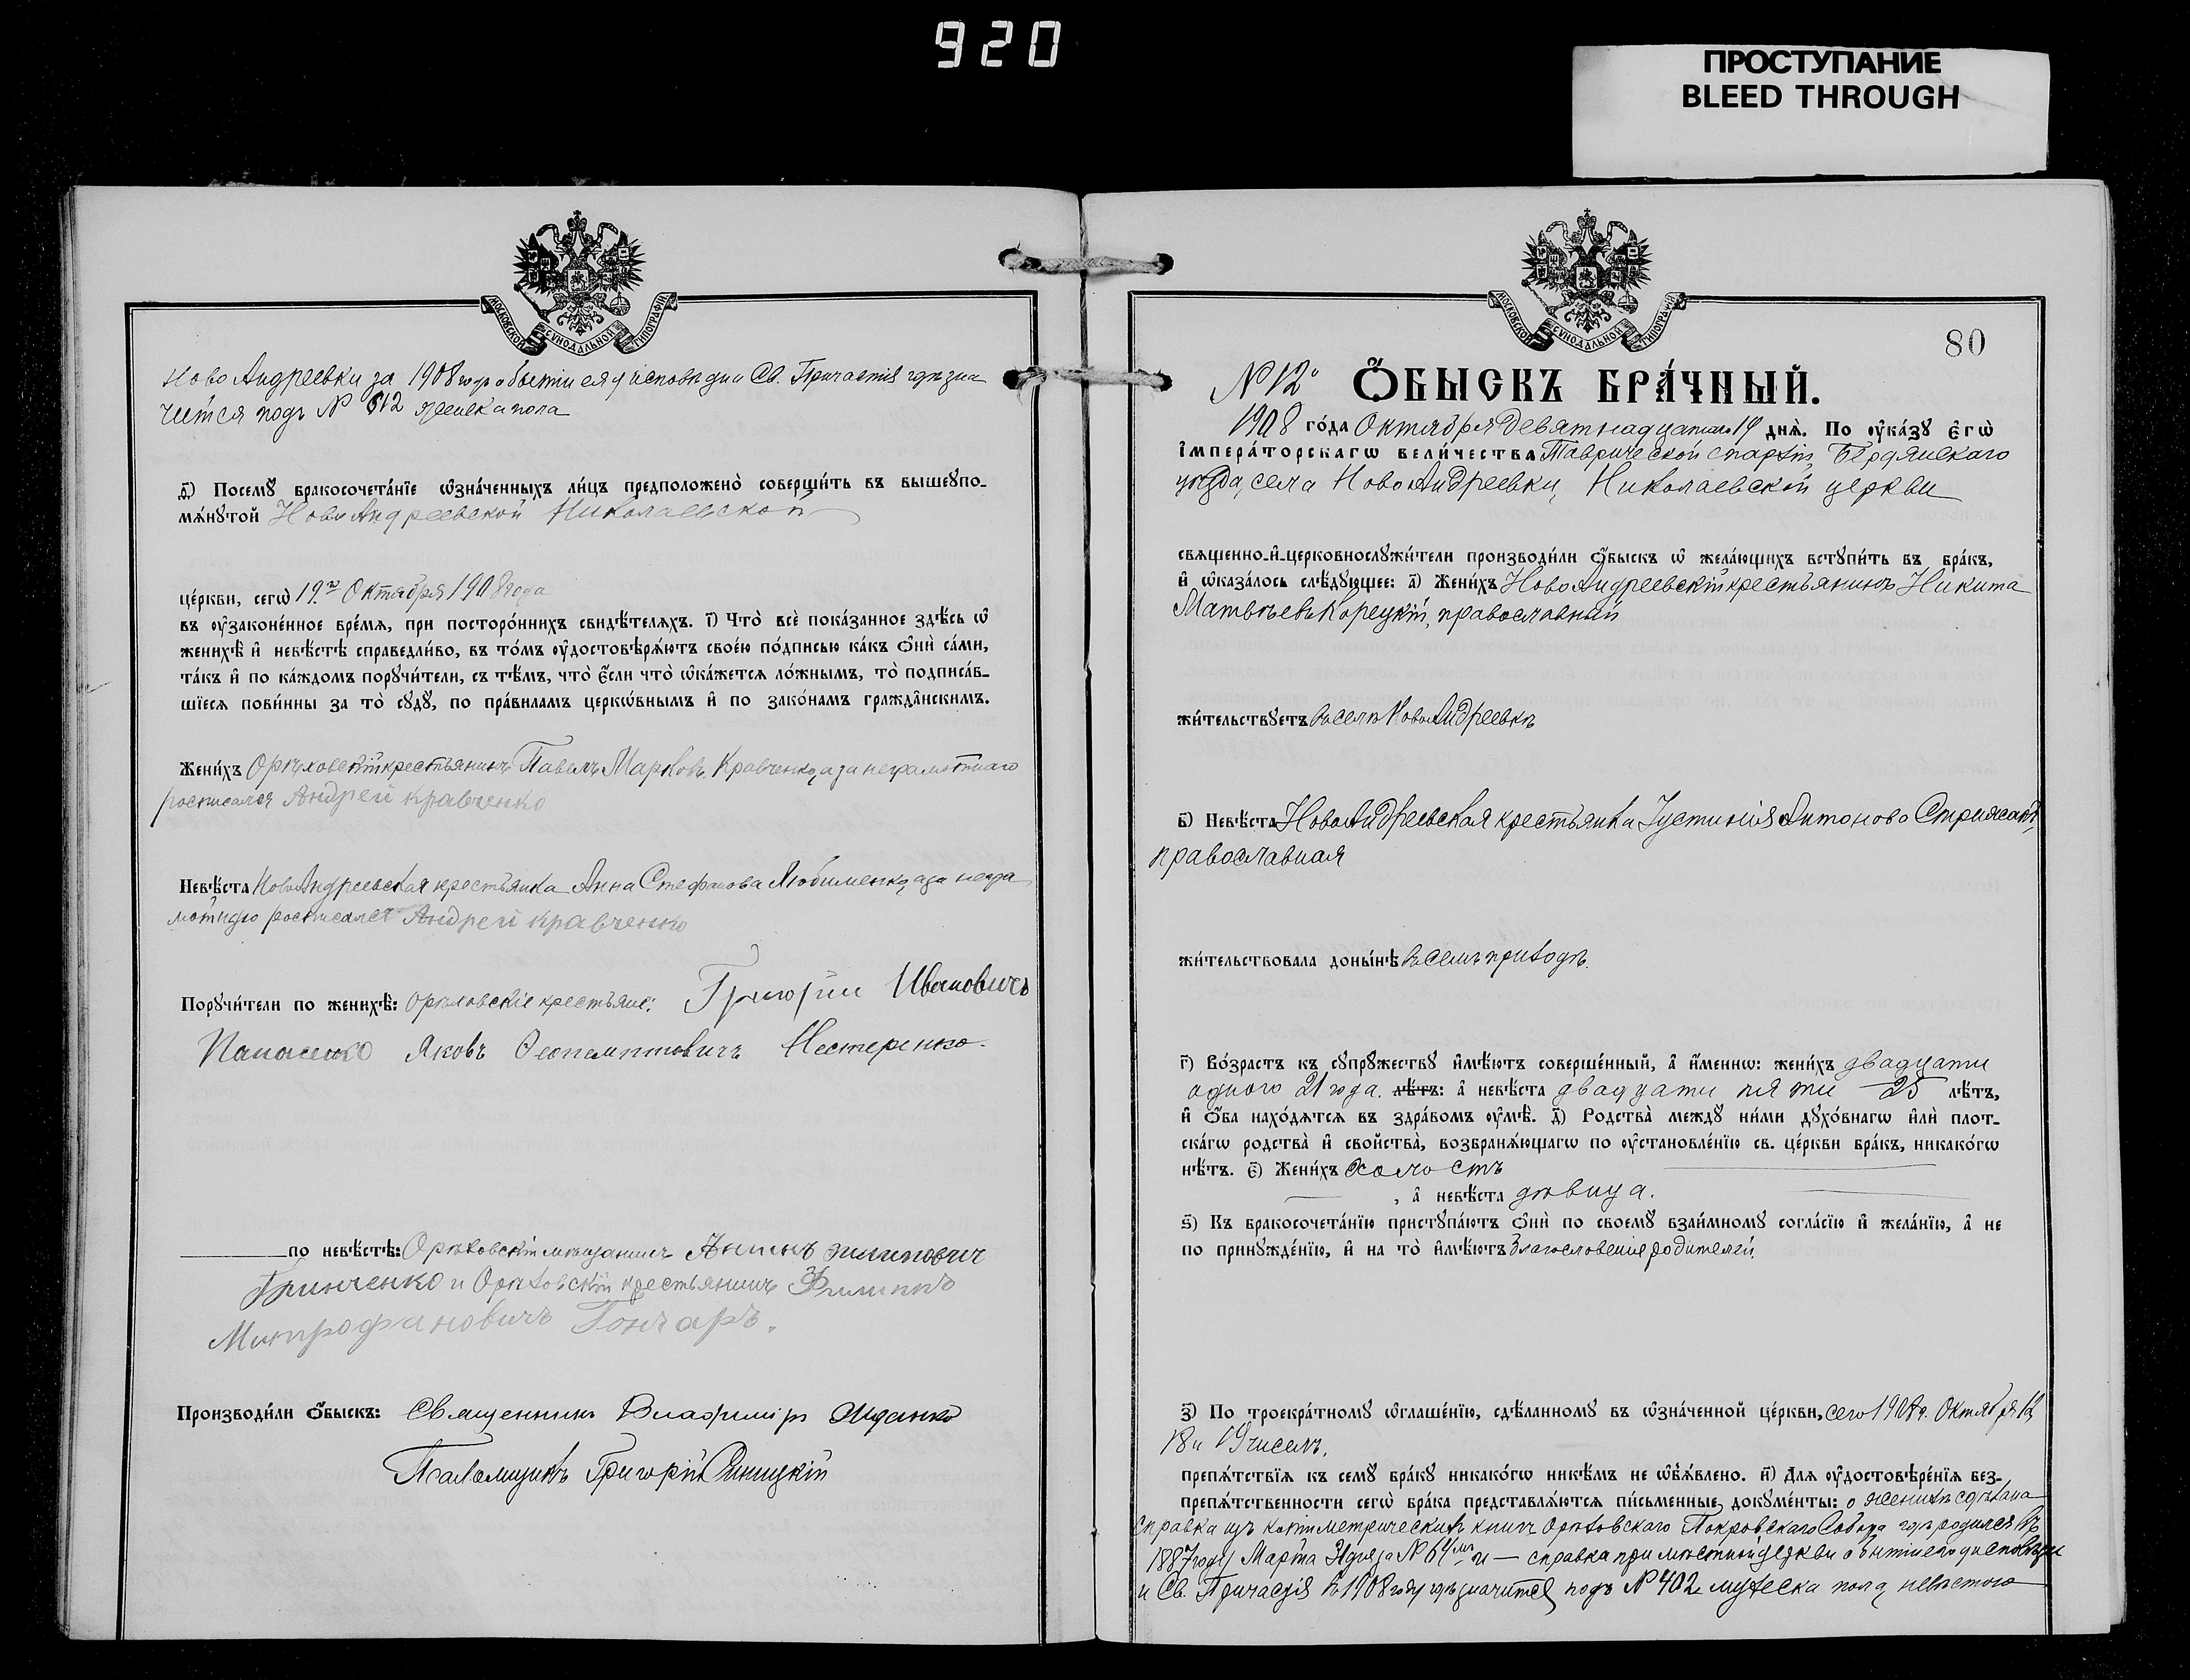 920
ПРОСТУПАНИЕ
BLEED THROUGH
МОСКОВСКОЙ СѴНОДАЛЬНОЙ ТИПОГРАФІИ
Ново Андреевки за 1908 годъ о бытіи ея у исповѣди и Св. Причастія гдѣ зна
чится подъ № 612 женска пола
д҃) Посемꙋ̀ бракосочета́нїе ѡ҆зна́ченныхъ ли́цъ предположено̀ соверши́ть въ вышеꙋпо-
мѧ́нꙋтой Ново Андреевской Николаевской
це́ркви, сегѡ̀ 19го Октября 1908 года
въ ᲂу҆зако́не́нное вре́мѧ, при посторо́ннихъ свидѣ́телѧхъ. і҃) Что̀ всѐ пока́занное здѣ́сь ѡ҆
женихѣ̀ и҆ невѣ́стѣ справедли́во, въ то́мъ ᲂу҆достовѣрѧ́ютъ свое́ю по́дписью ка́къ ѻ҆нѝ са́ми,
та́къ и҆ по ка́ждомъ порꙋчи́тели, съ тѣ́мъ, что̀ є҆́сли что̀ ѡ҆ка́жетсѧ ло́жнымъ, то̀ подписа́в-
шїесѧ пови́нны за то̀ сꙋдꙋ̀, по пра́виламъ церко́внымъ и҆ по зако́намъ гражда́нскимъ.
Жени́хъ Орѣховскій крестьянинъ Павелъ Марковъ Кравченко, а за неграмотнаго
росписался Андрей Кравченко
Невѣ́ста Ново Андреевская крестьянка Анна Стефанова Любименко, а за негра
мотную росписался Андрей Кравченко
Порꙋчи́тели по женихѣ̀: Орѣховскіе крестьяне: Григорій Ивановичъ
Панасенко Яковъ Феопемптовичъ Нестеренко.
по невѣ́стѣ: Орѣховскій мѣщанинъ
Гринченко и Орѣховскій крестьянинъ Филиппъ
Митрофановичъ Гончаръ.
Производи́ли ѻ҆́быскъ: Священникъ Владиміръ Жданко
Псаломщикъ Григорій Синицкій
МОСКОВСКОЙ СѴНОДАЛЬНОЙ ТИПОГРАФІИ
80
№ 12й Ѻ҆́БЫСКЪ БРА́ЧНЫЙ.
1908 го́да Октября девятнадцатаго 19 днѧ̀. По ᲂу҆ка́зꙋ є҆гѡ̀
і҆мпера́торскагѡ вели́чества Таврической епархіи, Бердянскаго
уѣзда, села Ново Андреевки, Николаевской церкви
свѧщенно-и҆-церковнослꙋжи́тели производи́ли ѻ҆́быскъ ѡ҆ жела́ющихъ встꙋпи́ть въ бра́къ,
и҆ ѡ҆каза́лось слѣ́дꙋющее: а҃) Жени́хъ Ново Андреевскій крестьянинъ Никита
Матвѣевъ Корецкій, православный
жи́тельствꙋетъ въ селѣ Ново Андреевкѣ
в҃) Невѣ́ста Ново Андреевская крестьянка Іустинія Антонова Стрижакъ,
православная
жи́тельствовала доны́нѣ въ семъ приходѣ.
г҃) Во́зрастъ къ сꙋпрꙋ́жествꙋ и҆мѣ́ютъ соверше́нный, а҆ и҆́меннѡ: жени́хъ двадцати
одного 21 года. лѣ́тъ: а҆ невѣ́ста двадцати пяти 25 лѣ́тъ,
и҆ ѻ҆́ба нахо́дѧтсѧ въ здра́вомъ ᲂу҆мѣ̀. д҃) Родства̀ междꙋ̀ ни́ми дꙋхо́внагѡ и҆лѝ плот-
ска́гѡ родства̀ и҆ свойства̀, возбранѧ́ющагѡ по ᲂу҆становле́нїю св. це́ркви бра́къ, никако́гѡ
нѣ́тъ. є҃) Жени́хъ холостъ
, а҆ невѣ́ста дѣвица.
ѕ҃) Къ бракосочета́нїю пристꙋпа́ютъ ѻ҆нѝ по своемꙋ̀ взаи́мномꙋ согла́сїю и҆ жела́нїю, а҆ не
по принꙋжде́нїю, и҆ на то̀ и҆мѣ́ютъ благословеніе родителей.
з҃) По троекра́тномꙋ ѡ҆глаше́нїю, сдѣ́ланномꙋ въ ѡ҆зна́ченной це́ркви, сего 1908 г. Октября 12,
18 и 19 чиселъ,
препѧ́тствїѧ къ семꙋ̀ бра́кꙋ никако́гѡ никѣ́мъ не ѡ҆б̾ѧ́влено. и҃) Длѧ ᲂу҆достовѣре́нїѧ без-
препѧ́тственности сегѡ̀ бра́ка представлѧ́ютсѧ пи́сьменные докꙋме́нты: о женихѣ сдѣлана
справка изъ копіи метрическихъ книгъ Орѣховскаго Покровскаго Собора гдѣ родился въ
1887 году Марта дня за № 64мъ и — справка при мѣстной церкви о бытіи его у исповѣди
и Св. Причастія въ 1908 году гдѣ значится подъ № 402 мужеска пола, невѣстою